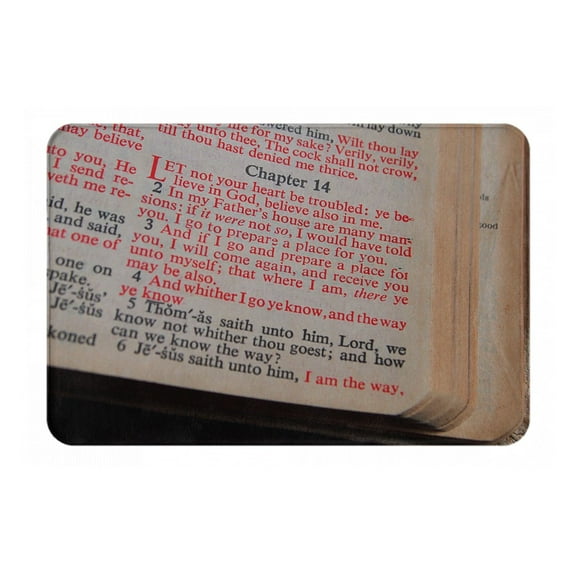 e, that,
may believe
to you, He
I send re-
veth me re-
id, he was
and said,
at one of
one on
spake.
Jē'-ṡŭs'
Jē'-ṡŭs
koned
wered him, Wilt thou lay
y life for my sake? Verily, verily,
ay unto thee, The cock shall not crow,
till thou hast denied me thrice.
Chapter 14
LET not your heart be troubled: ye be-
lieve in God, believe also in me.
2 In my Father's house are many man-
sions: if it were not so, I would have told
you. I go to prepare a place for you.
3 And if I go and prepare a place for
you, I will come again, and receive you
unto myself; that where I am, there ye
may be also.
4 And whither I go ye know, and the way
ye know.
5 Thŏm'-ăs saith unto him, Lord, we
know not whither thou goest; and how
can we know the way?
6 Jē'-ṡŭs saith unto him, I am the way,
lay down
ood